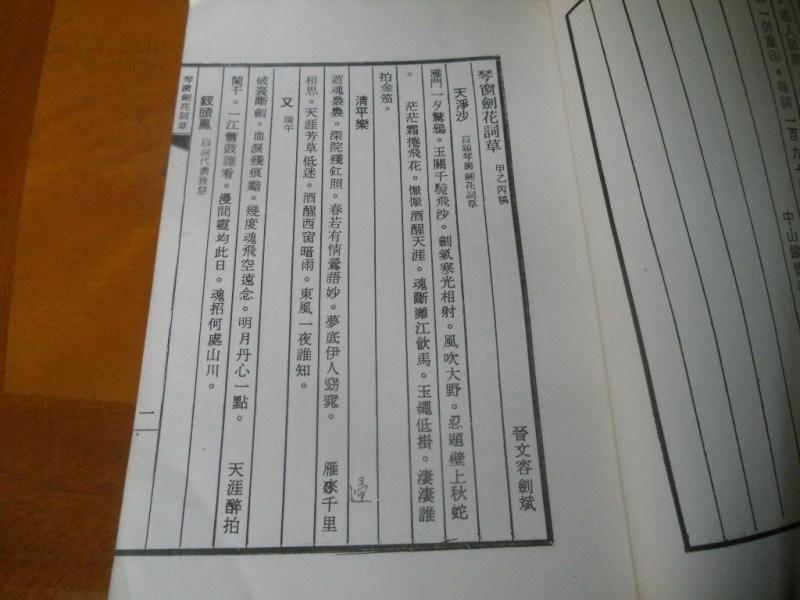 琴窗劍花詞草 甲乙丙稿
晉文容劍斌
天淨沙 自題琴窗劍花詞草
雁門一夕驚鴉。玉關千騎飛沙。劍氣寒光相射。風吹大野。忍題壁上秋蛇
。 茫茫霜捲飛花。懨懨酒醒天涯。魂斷灕江飲馬。玉繩低掛。淒淒誰
拍金笳。
清平樂
遊魂裊裊。深院殘釭照。春若有情鶯語妙。夢底伊人窈窕。 雁來千里
相思。天涯芳草低迷。酒醒西窗暗雨。東風一夜誰知。
又 端午
破裘斷劍。血淚殘痕黯。幾度魂飛空遠念。明月丹心一點。 天涯醉拍
闌干。一江簫鼓誰看。漫問靈均此日。魂招何處山川。
釵頭鳳 以詞代書致慧
琴窗劍花詞草
二
中山